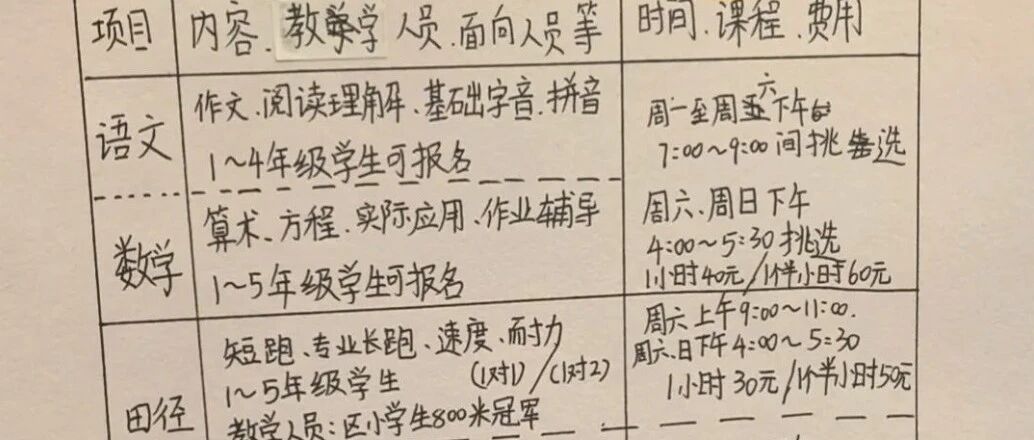 项目
内容、教学人员、面向人员等
时间、课程、费用
语文
作文、阅读理解、基础字音、拼音
1~4年级学生可报名
周一至周六下午
7:00~9:00间挑选
数学
算术、方程、实际应用、作业辅导
1~5年级学生可报名
周六、周日下午
4:00~5:30挑选
1小时40元/1个半小时60元
田径
短跑、专业长跑、速度、耐力
1~5年级学生 (1对1)/(1对2)
教学人员:区小学生800米冠军
周六上午9:00~11:00.
周六、日下午4:00~5:30
1小时30元/1个半小时50元